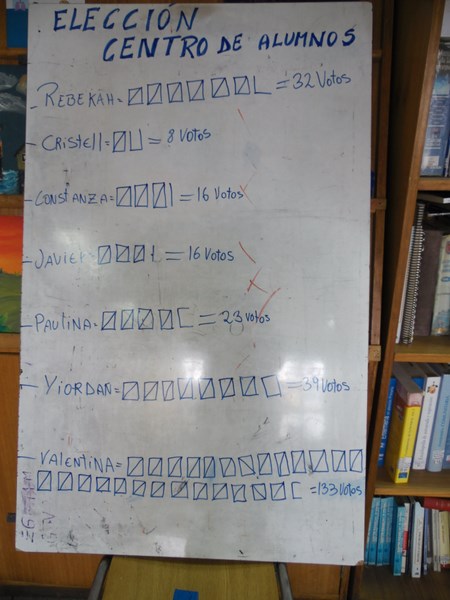 ELECCIÓN
CENTRO DE ALUMNOS
- REBEKAH = = 32 Votos
- CRISTEll = = 8 Votos
- CONSTANZA = = 16 Votos
- JAVIER = = 16 Votos
- PAULINA = = 23 Votos
- YIORDAN = = 39 Votos
- VALENTINA =
= 133 Votos